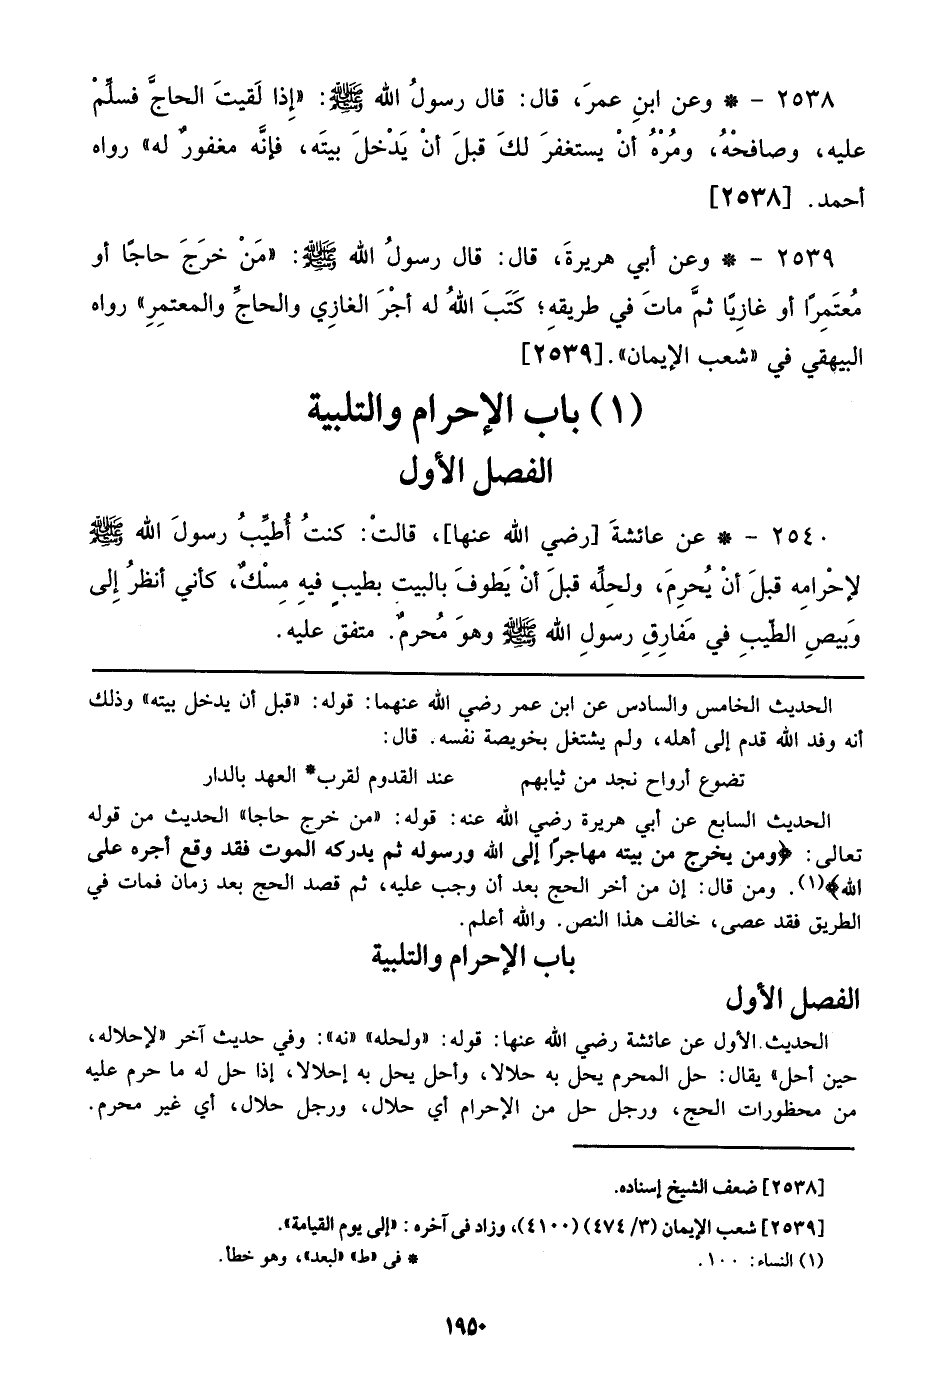 ٢٥٣٨ - * وعن ابنِ عمرَ، قال: قال رسولُ الله ﷺ: «إِذا لَقيتَ الحاجَّ فسلِّمْ
عليه، وصافحْهُ، ومُرْهُ أنْ يستغفرَ لكَ قبلَ أنْ يَدْخلَ بيتَه، فإنَّه مغفورٌ له» رواه
أحمد. [٢٥٣٨]
٢٥٣٩ - * وعن أبي هريرةَ، قال: قال رسولُ الله ﷺ: «مَنْ خرَجَ حاجًا أو
مُعتَمِرًا أو غازِيًا ثمَّ ماتَ في طريقهِ؛ كَتَبَ اللهُ له أجْرَ الغازِي والحاجِّ والمعتمِرِ» رواه
البيهقي في «شعب الإيمان».[٢٥٣٩]
(١) باب الإحرام والتلبية
الفصل الأول
٢٥٤٠ - * عن عائشةَ [رضي الله عنها]، قالتْ: كنتُ أُطيِّبُ رسولَ الله ﷺ
لإحْرامِه قبلَ أنْ يُحرِمَ، ولحِلِّه قبلَ أنْ يَطوفَ بالبيتِ بطيبٍ فيهِ مِسْكٌ، كأني أنظرُ إِلى
وَبيصِ الطِّيبِ في مَفارِقِ رسولِ الله ﷺ وهوَ مُحرمٌ. متفق عليه.
الحديث الخامس والسادس عن ابن عمر رضي الله عنهما: قوله: «قبل أن يدخل بيته» وذلك
أنه وفد الله قدم إلى أهله، ولم يشتغل بخويصة نفسه. قال:
تضوع أرواح نجد من ثيابهم عند القدوم لقرب* العهد بالدار
الحديث السابع عن أبي هريرة رضي الله عنه: قوله: «من خرج حاجا» الحديث من قوله
تعالى: ﴿ومن يخرج من بيته مهاجرًا إلى الله ورسوله ثم يدركه الموت فقد وقع أجره على
الله﴾(١). ومن قال: إن من أخر الحج بعد أن وجب عليه، ثم قصد الحج بعد زمان فمات في
الطريق فقد عصى، خالف هذا النص. والله أعلم.
باب الإحرام والتلبية
الفصل الأول
الحديث الأول عن عائشة رضي الله عنها: قوله: «ولحله» «نه»: وفي حديث آخر «لإحلاله،
حين أحل» يقال: حل المحرم يحل به حلالا، وأحل يحل به إحلالا، إذا حل له ما حرم عليه
من محظورات الحج، ورجل حل من الإحرام أي حلال، ورجل حلال، أي غير محرم.
[٢٥٣٨] ضعف الشيخ إسناده.
[٢٥٣٩] شعب الإيمان (٣/ ٤٧٤) (٤١٠٠)، وزاد فى آخره : «إلى يوم القيامة».
(١) النساء: ١٠٠. * فى «ط» «لبعد»، وهو خطأ.
١٩٥٠